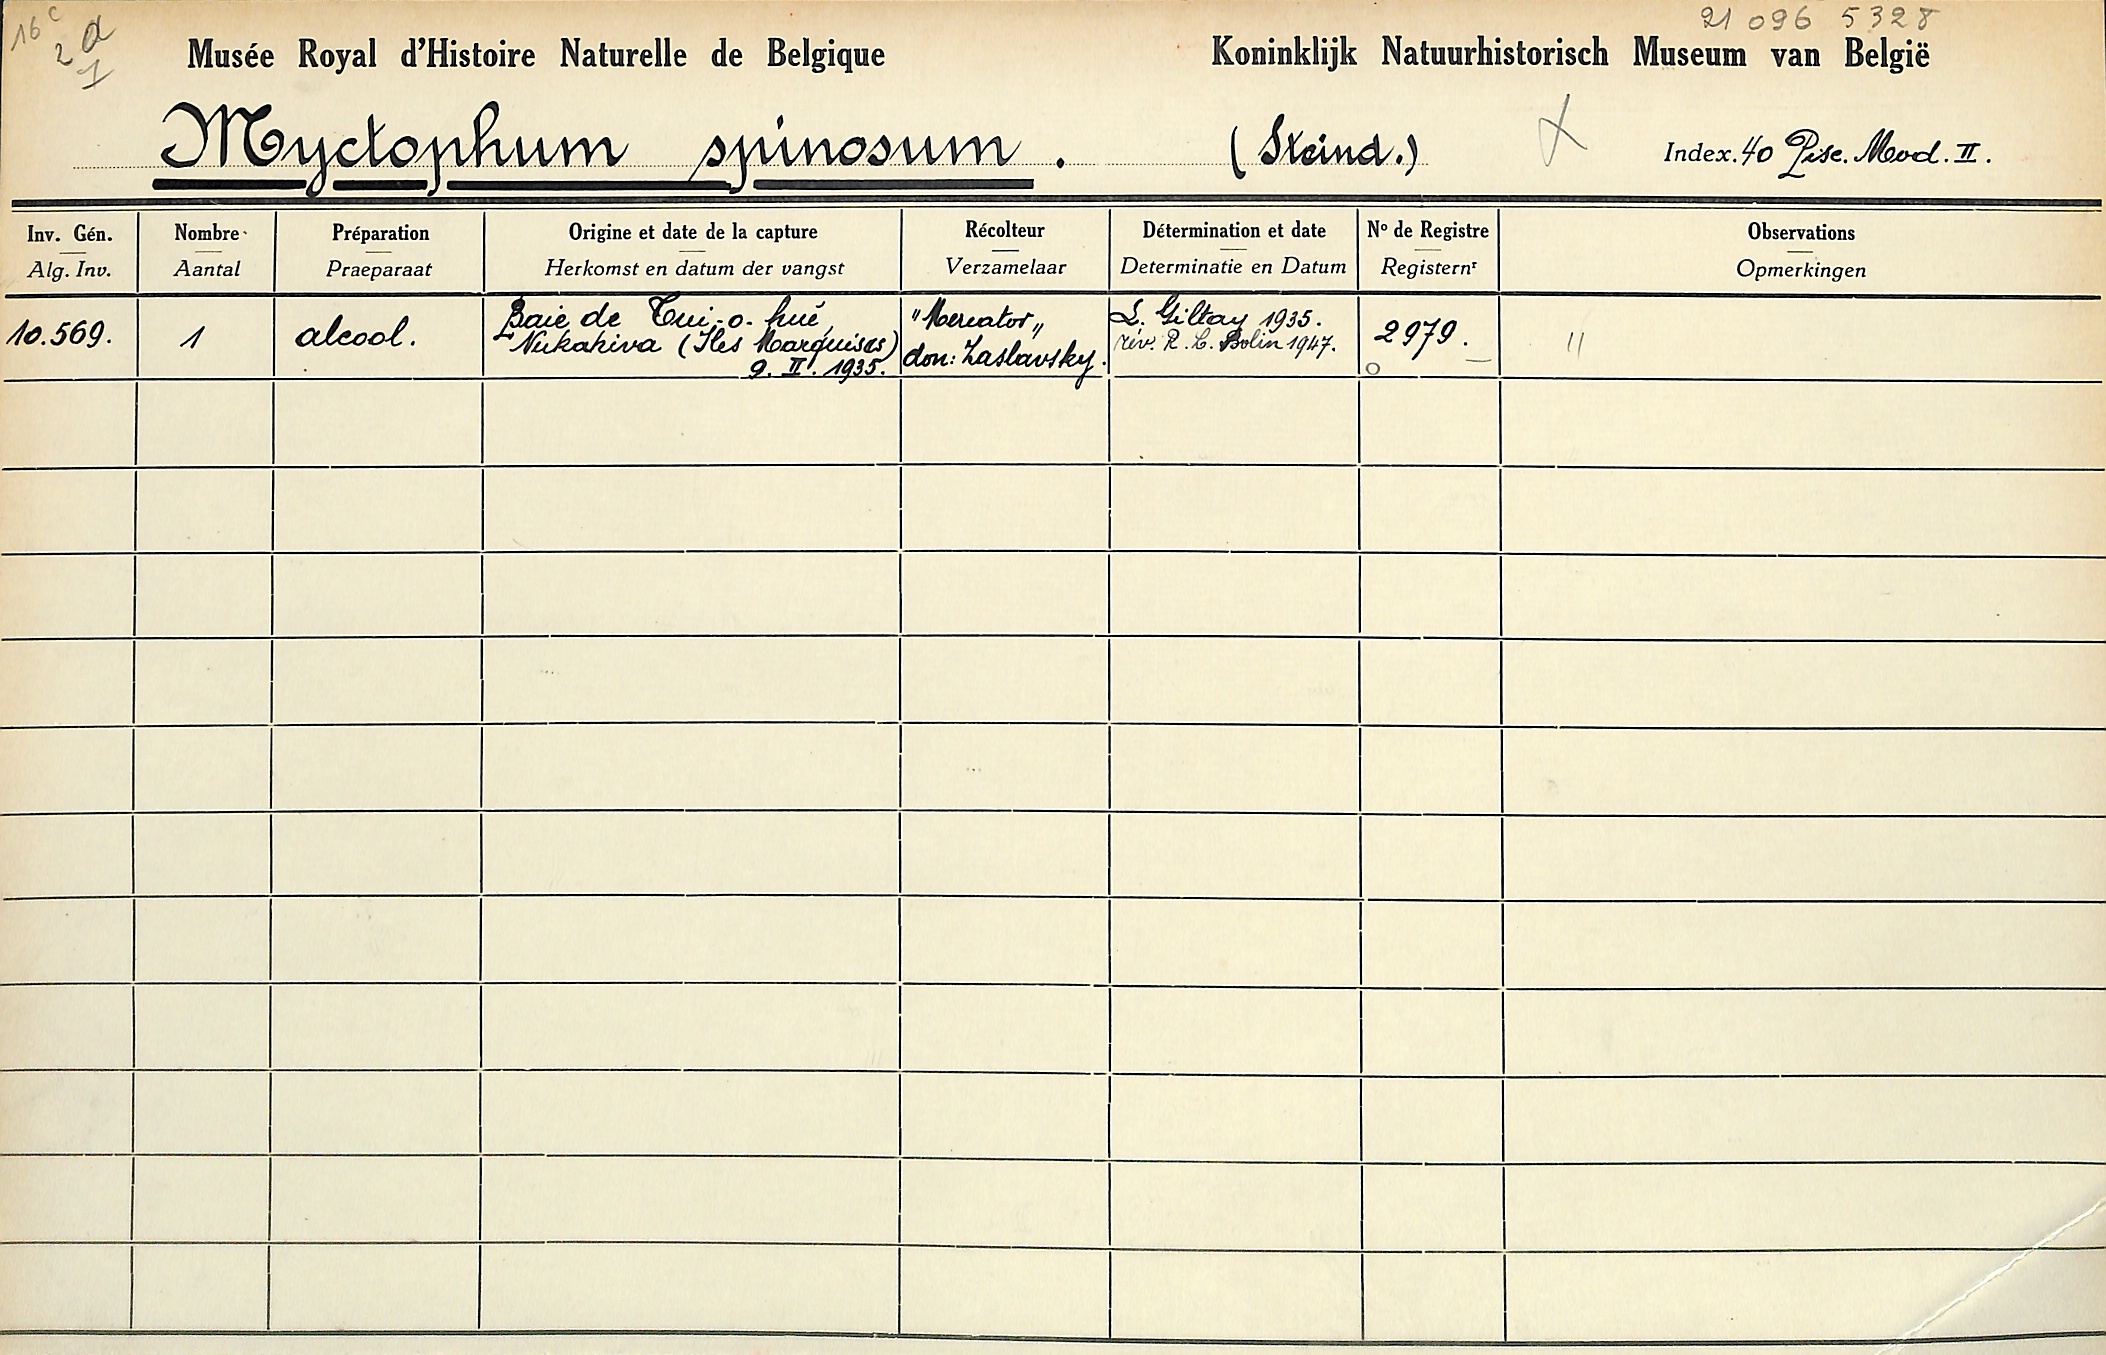 16 c
2 a
1
21 096 5328
Musée Royal d'Histoire Naturelle de Belgique Koninklijk Natuurhistorisch Museum van België
Myctophum spinosum. (Steind.) Index. 40 Pisc. Mvd. II.
Inv. Gén. Nombre Préparation Origine et date de la capture Récolteur Détermination et date No de Registre Observations
Alg. Inv. Aantal Praeparaat Herkomst en datum der vangst Verzamelaar Determinatie en Datum Registernr Opmerkingen
10.569. 1 alcool. Baie de Tui-o-hué, "Mercator„ L. Giltay 1935. 2979. "
Nukahiva (Iles Marquises) don: Zaslavsky. rév. R. L. Bolin 1947.
9. II. 1935.